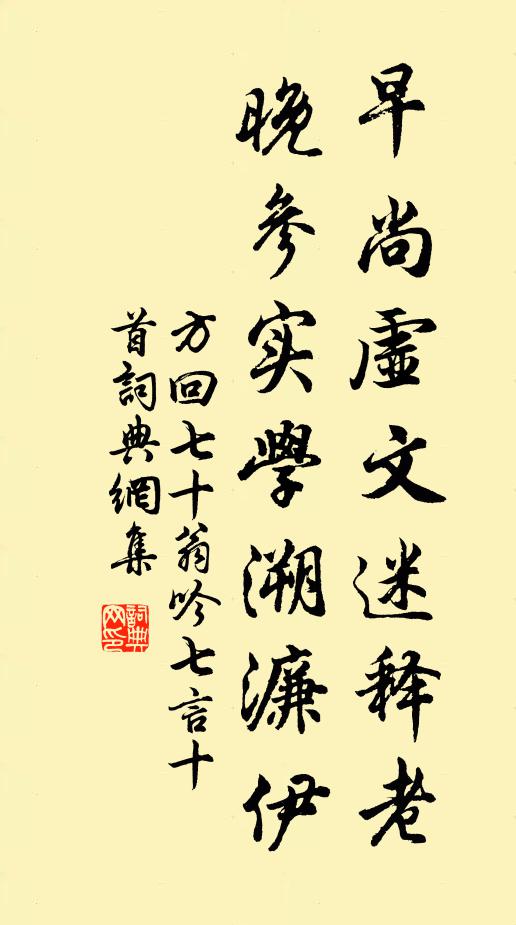 早尚虛文迷释老
晚参实學溯濂伊
方回七十翁吟七言十
首詞典網集
詞典
网印